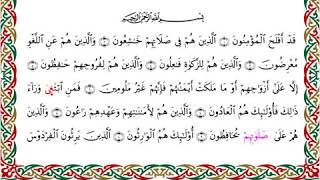 بِسْمِ ٱللَّهِ ٱلرَّحْمَٰنِ ٱلرَّحِيمِ
قَدْ أَفْلَحَ ٱلْمُؤْمِنُونَ ۝ ٱلَّذِينَ هُمْ فِى صَلَاتِهِمْ خَٰشِعُونَ ۝ وَٱلَّذِينَ هُمْ عَنِ ٱللَّغْوِ
مُعْرِضُونَ ۝ وَٱلَّذِينَ هُمْ لِلزَّكَوٰةِ فَٰعِلُونَ ۝ وَٱلَّذِينَ هُمْ لِفُرُوجِهِمْ حَٰفِظُونَ ۝
إِلَّا عَلَىٰٓ أَزْوَٰجِهِمْ أَوْ مَا مَلَكَتْ أَيْمَٰنُهُمْ فَإِنَّهُمْ غَيْرُ مَلُومِينَ ۝ فَمَنِ ٱبْتَغَىٰ وَرَآءَ
ذَٰلِكَ فَأُو۟لَٰٓئِكَ هُمُ ٱلْعَادُونَ ۝ وَٱلَّذِينَ هُمْ لِأَمَٰنَٰتِهِمْ وَعَهْدِهِمْ رَٰعُونَ ۝ وَٱلَّذِينَ
هُمْ عَلَىٰ صَلَوَٰتِهِمْ يُحَافِظُونَ ۝ أُو۟لَٰٓئِكَ هُمُ ٱلْوَٰرِثُونَ ۝ ٱلَّذِينَ يَرِثُونَ ٱلْفِرْدَوْسَ